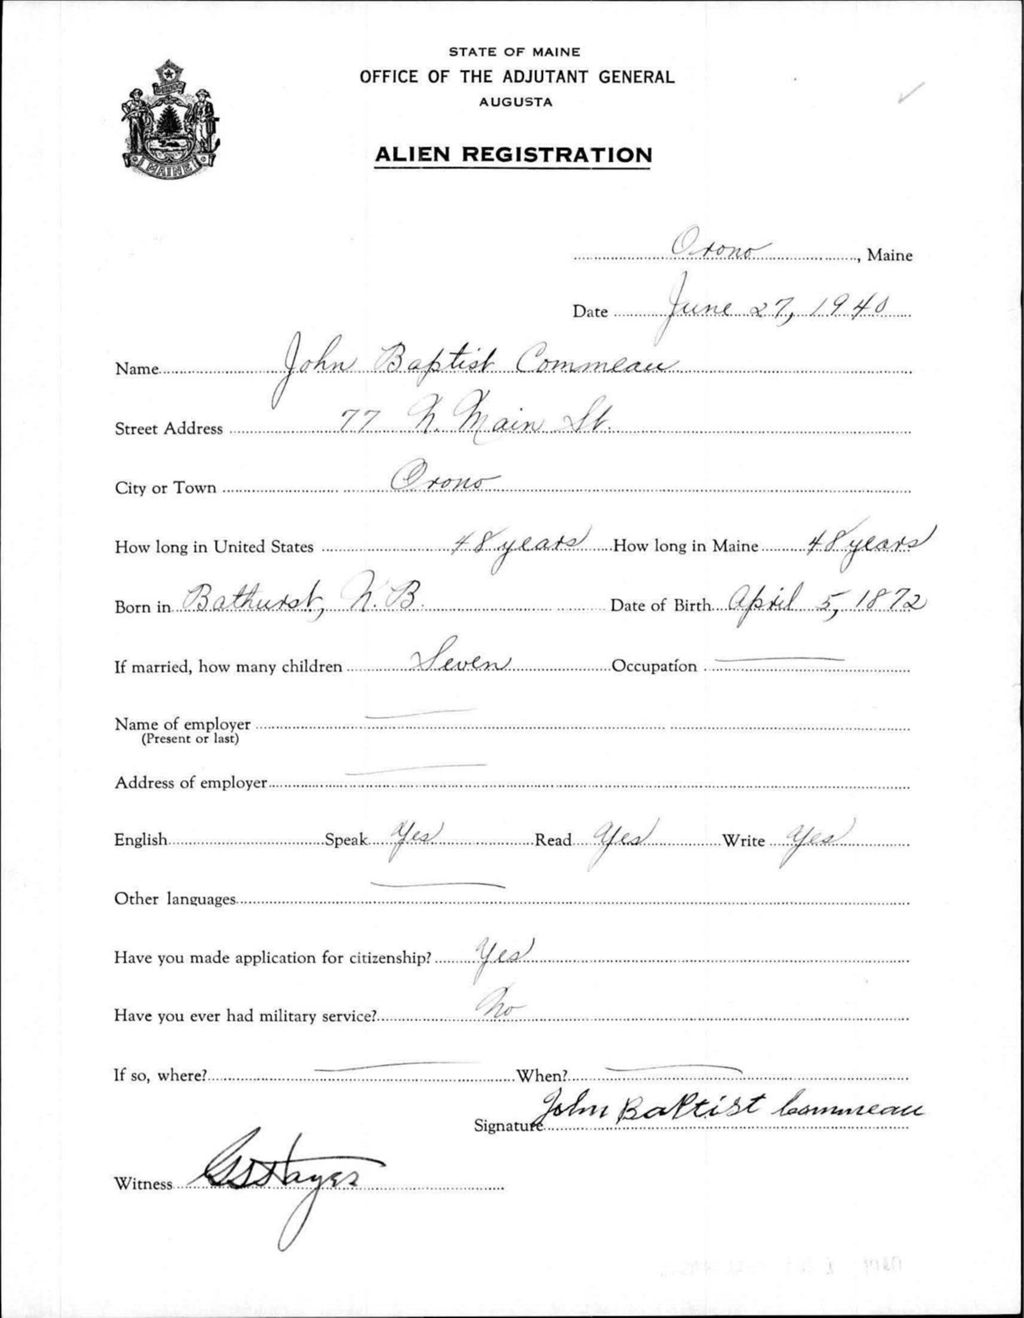 STATE OF MAINE
OFFICE OF THE ADJUTANT GENERAL
AUGUSTA
ALIEN REGISTRATION
MAINE
Orono, Maine
Date June 27, 1940
Name John Baptist Commeau
Street Address 77 N. Main St.
City or Town Orono
How long in United States 48 years How long in Maine 48 years
Born in Bathurst, N.B. Date of Birth April 5, 1872
If married, how many children Seven Occupation
Name of employer
(Present or last)
Address of employer
English Speak Yes Read Yes Write Yes
Other languages
Have you made application for citizenship? Yes
Have you ever had military service? No
If so, where? When?
Signature John Baptist Commeau
Witness Hayes